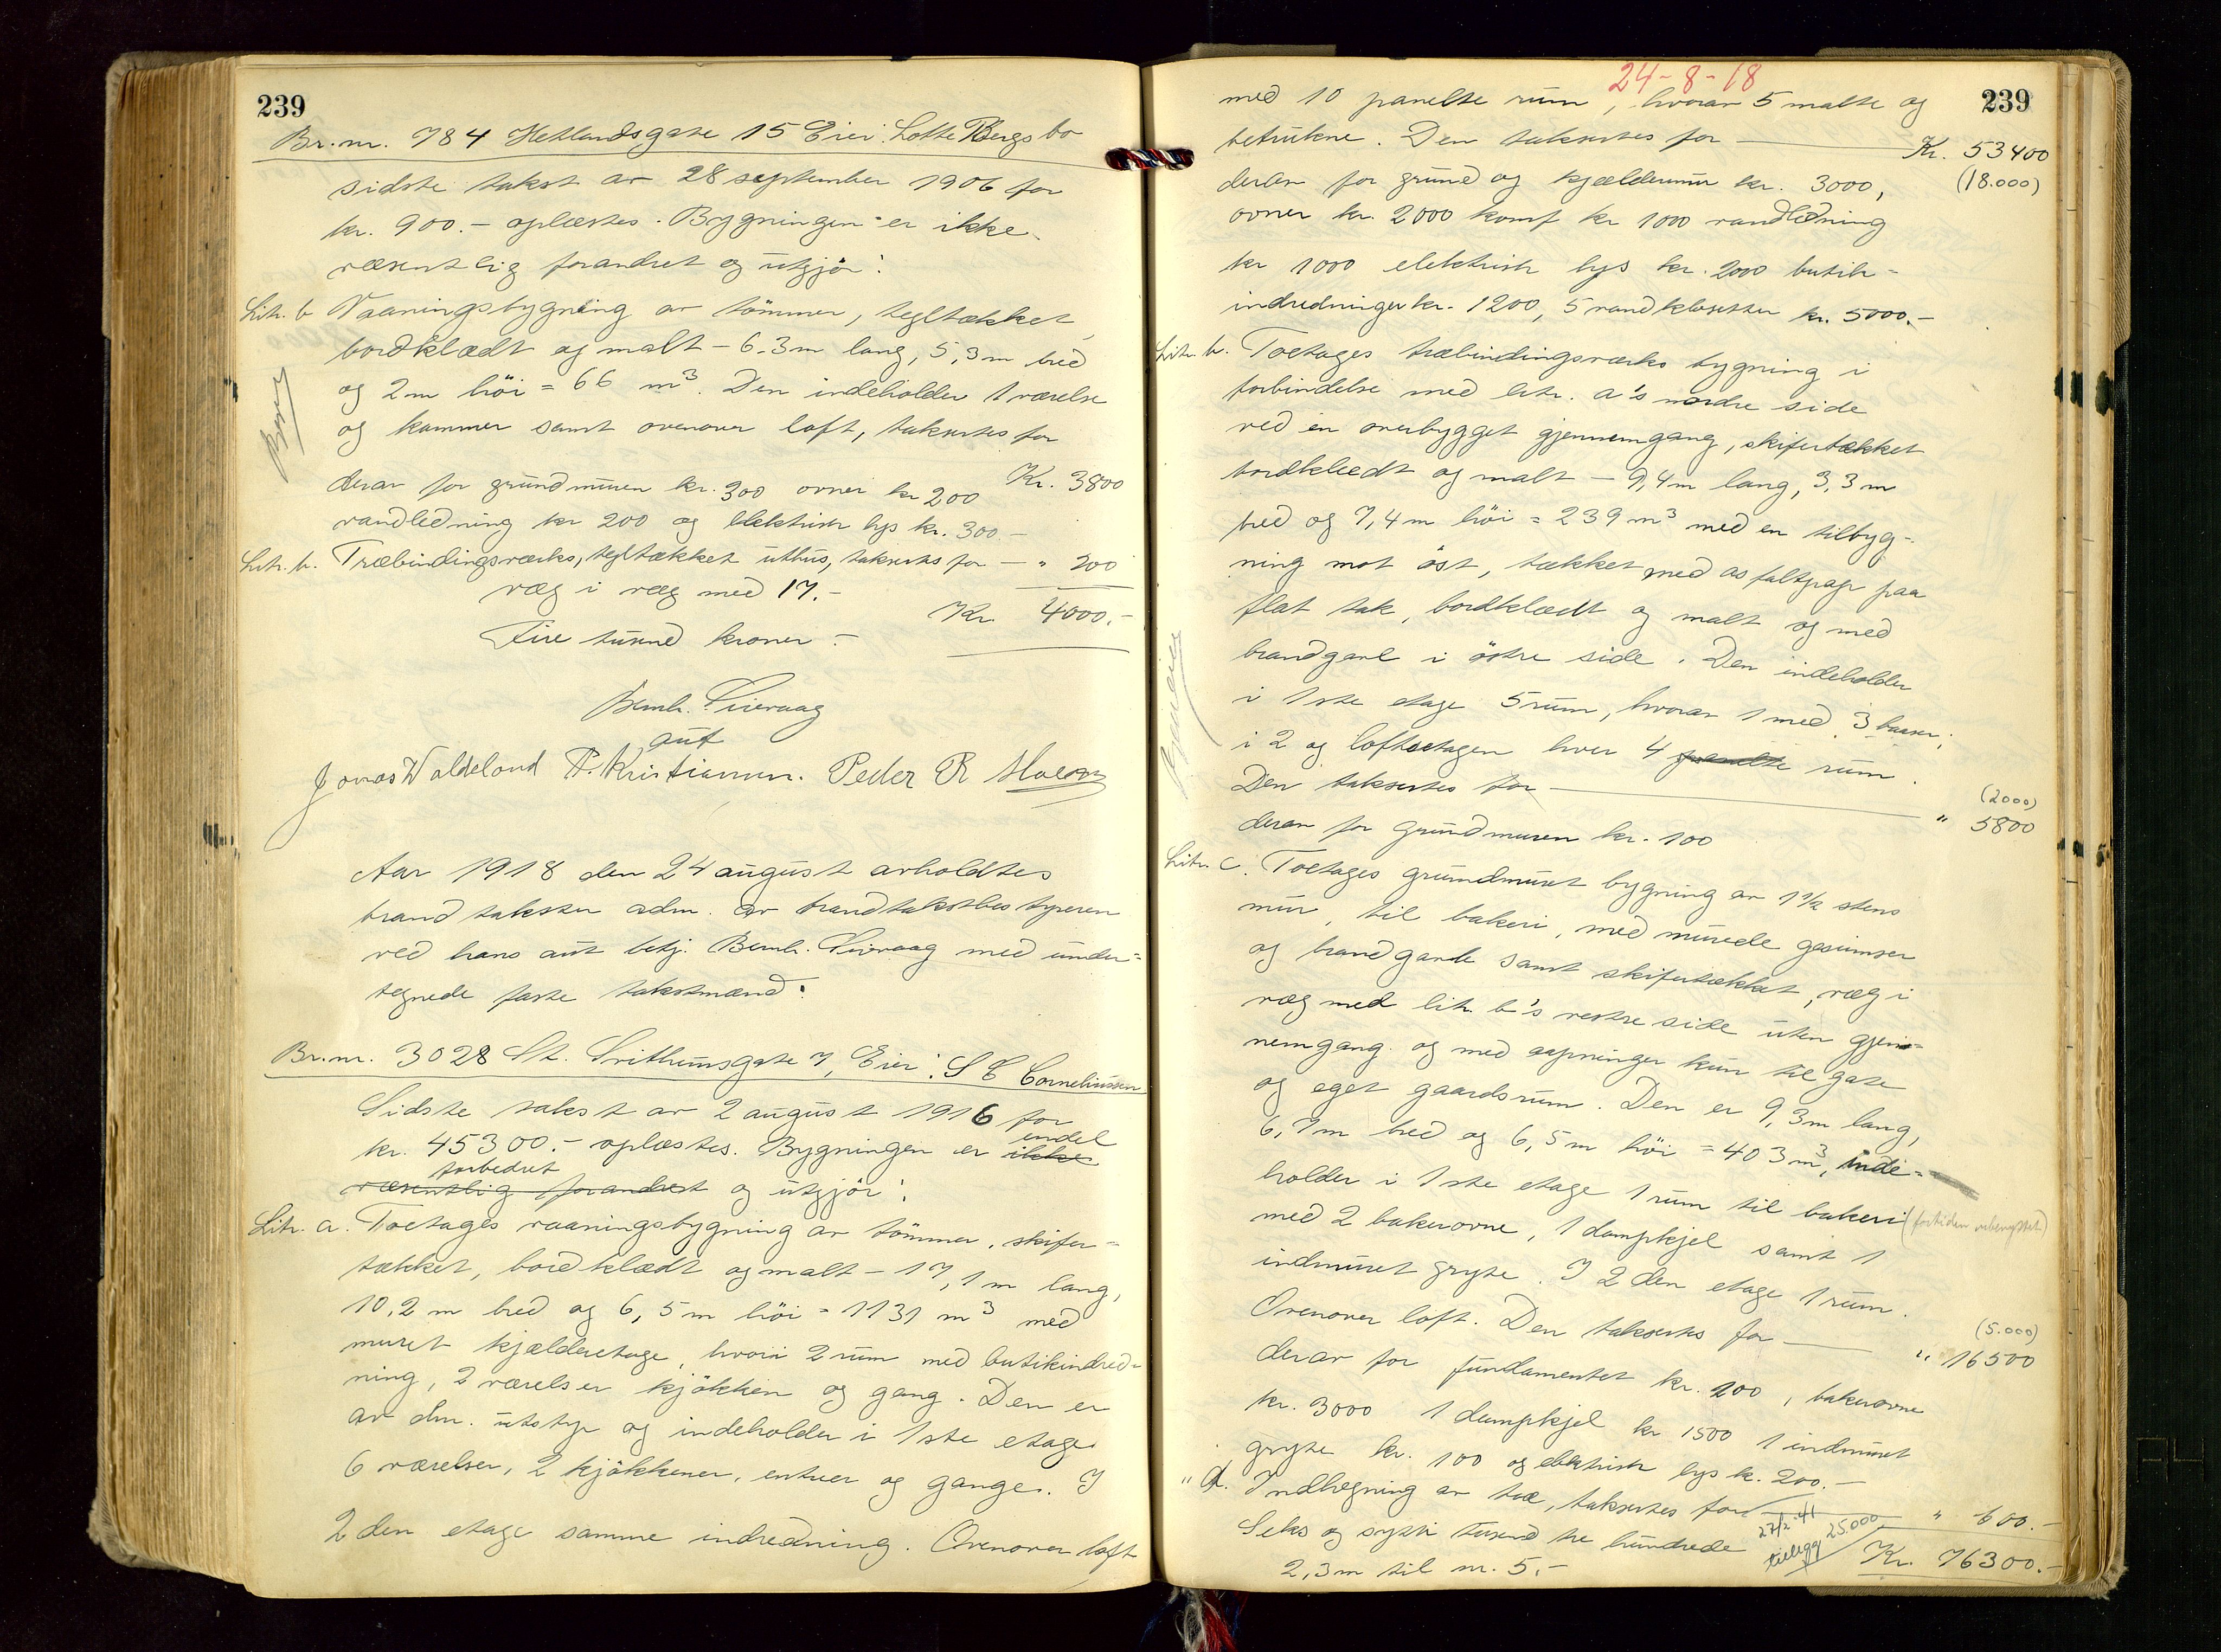 239
Br.nr. 784 Hetlandsgate 15 Eier: Lotte Bergs bo
sidste takst av 28 september 1906 for
kr. 900.- oplæstes. Bygningen er ikke
væsentlig forandret og utgjör:
Litr. b Vaaningsbygning av tömmer, tegltækket,
bordklædt og malt - 6,3m lang, 5,3m bred
og 2m höi = 66 m³. Den indeholder 1 værelse
og kammer samt ovenover loft, takseres for
Kr. 3800
derav for grundmuren kr. 300 ovner kr 200
vandledning kr 200 og elektrisk lys kr. 300.-
Litr. b. Træbindingsverks, tegltækket uthus, takseres for - " 200
væg i væg med 17.-
Kr 4000.-
Fire tusend kroner.-
Bernh. Sirevaag
aut
Jonas Waldeland P. Kristiansen. Peder R
Aar 1918 den 24 august avholdtes
brandtakster adm. av brandtakstbestyreren
ved hans aut betj. Bernh. Sirevaag med under-
tegnede faste takstmænd:
Br.nr. 3028 St. Svithunsgate 7, Eier: S E Corneliussen
Sidste takst av 2 august 1916 for
kr. 45300.- oplæstes. Bygningen er ikke endel
væsentlig forandret forbedret og utgjör:
Litr. a. Toetages vaaningsbygning av tömmer, skifer-
tækket, bordklædt og malt - 17,1m lang,
10,2 m bred og 6,5m höi = 1131 m³ med
muret kjælderetage, hvori 2 rum med butikindred-
ning, 2 værelser kjökken og gang. Den er
av alm. utstyr og indeholder i 1ste etage
6 værelser, 2 kjökkener, entreer og ganger. I
2den etage samme indredning. Ovenover loft
24-8-18
239
med 10 panelte rum, hvorav 5 malte og
betrukne. Den takseres for - Kr. 53400
(18.000)
derav for grund og kjældermur kr. 3000,
ovner kr. 2000 komf kr 1000 vandledning
kr 1000 elektrisk lys kr. 2000 butik-
indredninger kr. 1200, 5 vandklosetter kr. 5000.-
Litr. b. Toetages træbindingsverks bygning i
forbindelse med litr. a's nordre side
ved en overbygget gjennemgang, skifertækket
bordklædt og malt - 9,4m lang, 3,3m
bred og 7,4m höi = 239m³ med en tilbyg-
ning mot öst, tækket med asfaltpap paa
flat tak, bordklædt og malt og med
brandgavl i östre side. Den indeholder
i 1ste etage 5 rum, hvorav 1 med 3
i 2 og loftsetagen hver 4 panelte rum.
(2000)
Den takseres for - " 5800
derav for grundmuren kr. 100
Litr. c. Toetages grundmuret bygning av 1½ stens
mur, til bakeri, med murede gesimser
og brandgavle samt skifertækket, væg i
væg med litr. b's vestre side uten gjen-
nemgang og med aapninger kun til gate
og eget gaardsrum. Den er 9,3m lang,
6,7m bred og 6,5m höi = 403m³, inde-
holder i 1ste etage 1 rum til bakeri (fortiden ubenyttet)
med 2 bakerovne, 1 dampkjel samt 1
indmuret gryte. I 2den etage 1 rum.
(5.000)
Ovenover loft. Den takseres for - " 16500
derav for fundamentet kr. 200, bakerovne
kr. 3000 1 dampkjel kr 1500 1 indmuret
gryte kr. 100 og elektrisk lys kr. 200.-
" d. Indhegning av træ, takseres for - " 600.-
Seks og sytti tusend tre hundrede 27/2-41 tillegg 25.000 Kr. 76300.-
2,3m til nr. 5.-